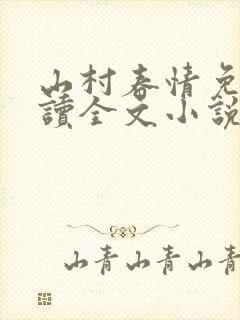 山村春情免
讀全文小說
山青山青山青